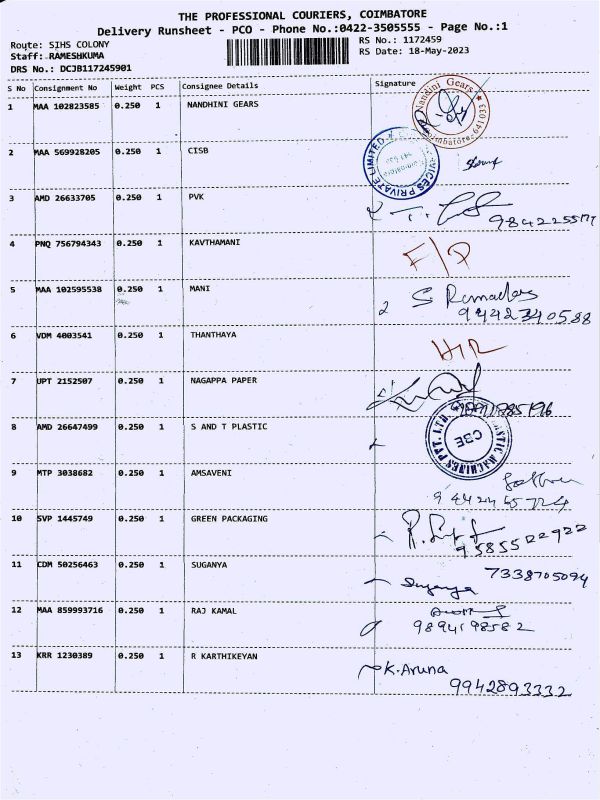 THE PROFESSIONAL COURIERS, COIMBATORE
Delivery Runsheet - PCO - Phone No.:0422-3505555 - Page No.:1
Route: SIHS COLONY
RS No.: 1172459
Staff: RAMESHKUMA
RS Date: 18-May-2023
DRS No.: DCJB117245901
S No Consignment No Weight PCS Consignee Details Signature
1 MAA 102823585 0.250 1 NANDHINI GEARS Nandini Gears
2 MAA 569928205 0.250 1 CISB
3 AMD 26633705 0.250 1 PVK
4 PNQ 756794343 0.250 1 KAVTHAMANI F/P
5 MAA 102595538 0.250 1 MANI S Ramadas
9442340588
6 VDM 4003541 0.250 1 THANTHAYA
7 UPT 2152507 0.250 1 NAGAPPA PAPER
8 AMD 26647499 0.250 1 S AND T PLASTIC CBE
9 MTP 3038682 0.250 1 AMSAVENI
10 SVP 1445749 0.250 1 GREEN PACKAGING
9585522922
11 CDM 50256463 0.250 1 SUGANYA 7338705094
Suganya
12 MAA 859993716 0.250 1 RAJ KAMAL
9894198582
13 KRR 1230389 0.250 1 R KARTHIKEYAN K.Aruna
9942893332